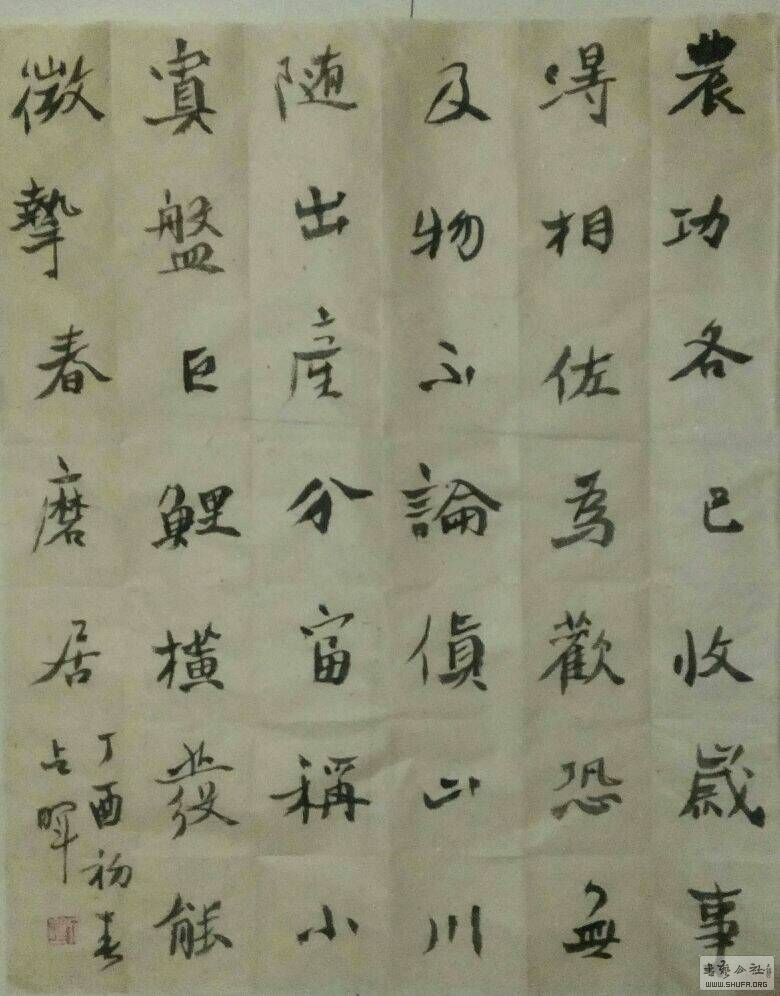 農功各已收歲事
得相佐為歡恐無
及物不論偵山川
随出産分富稱小
寘盤巨鯉橫發能
微摯春磨居
丁酉初春
占暉
WWW.SHUFA.ORG